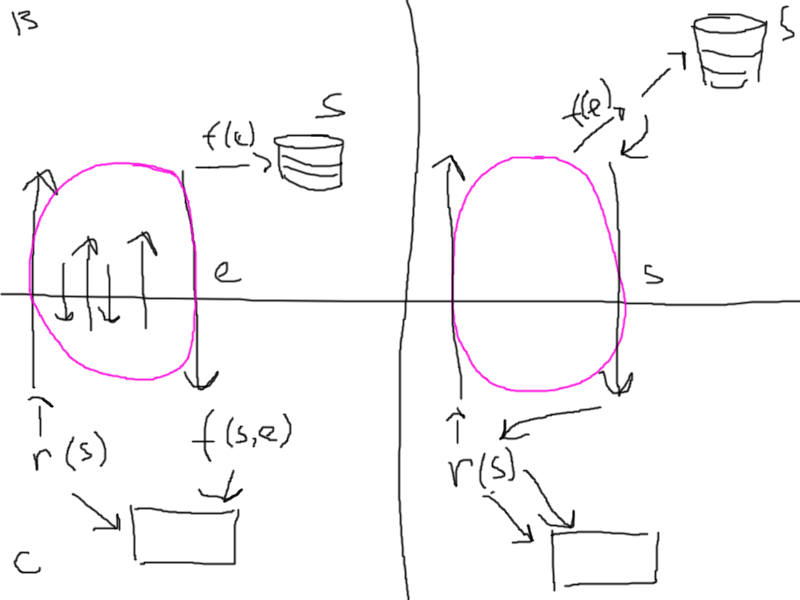 B
S
f(e)
e
r(s)
f(s,e)
C
S
f(e)
s
r(s)